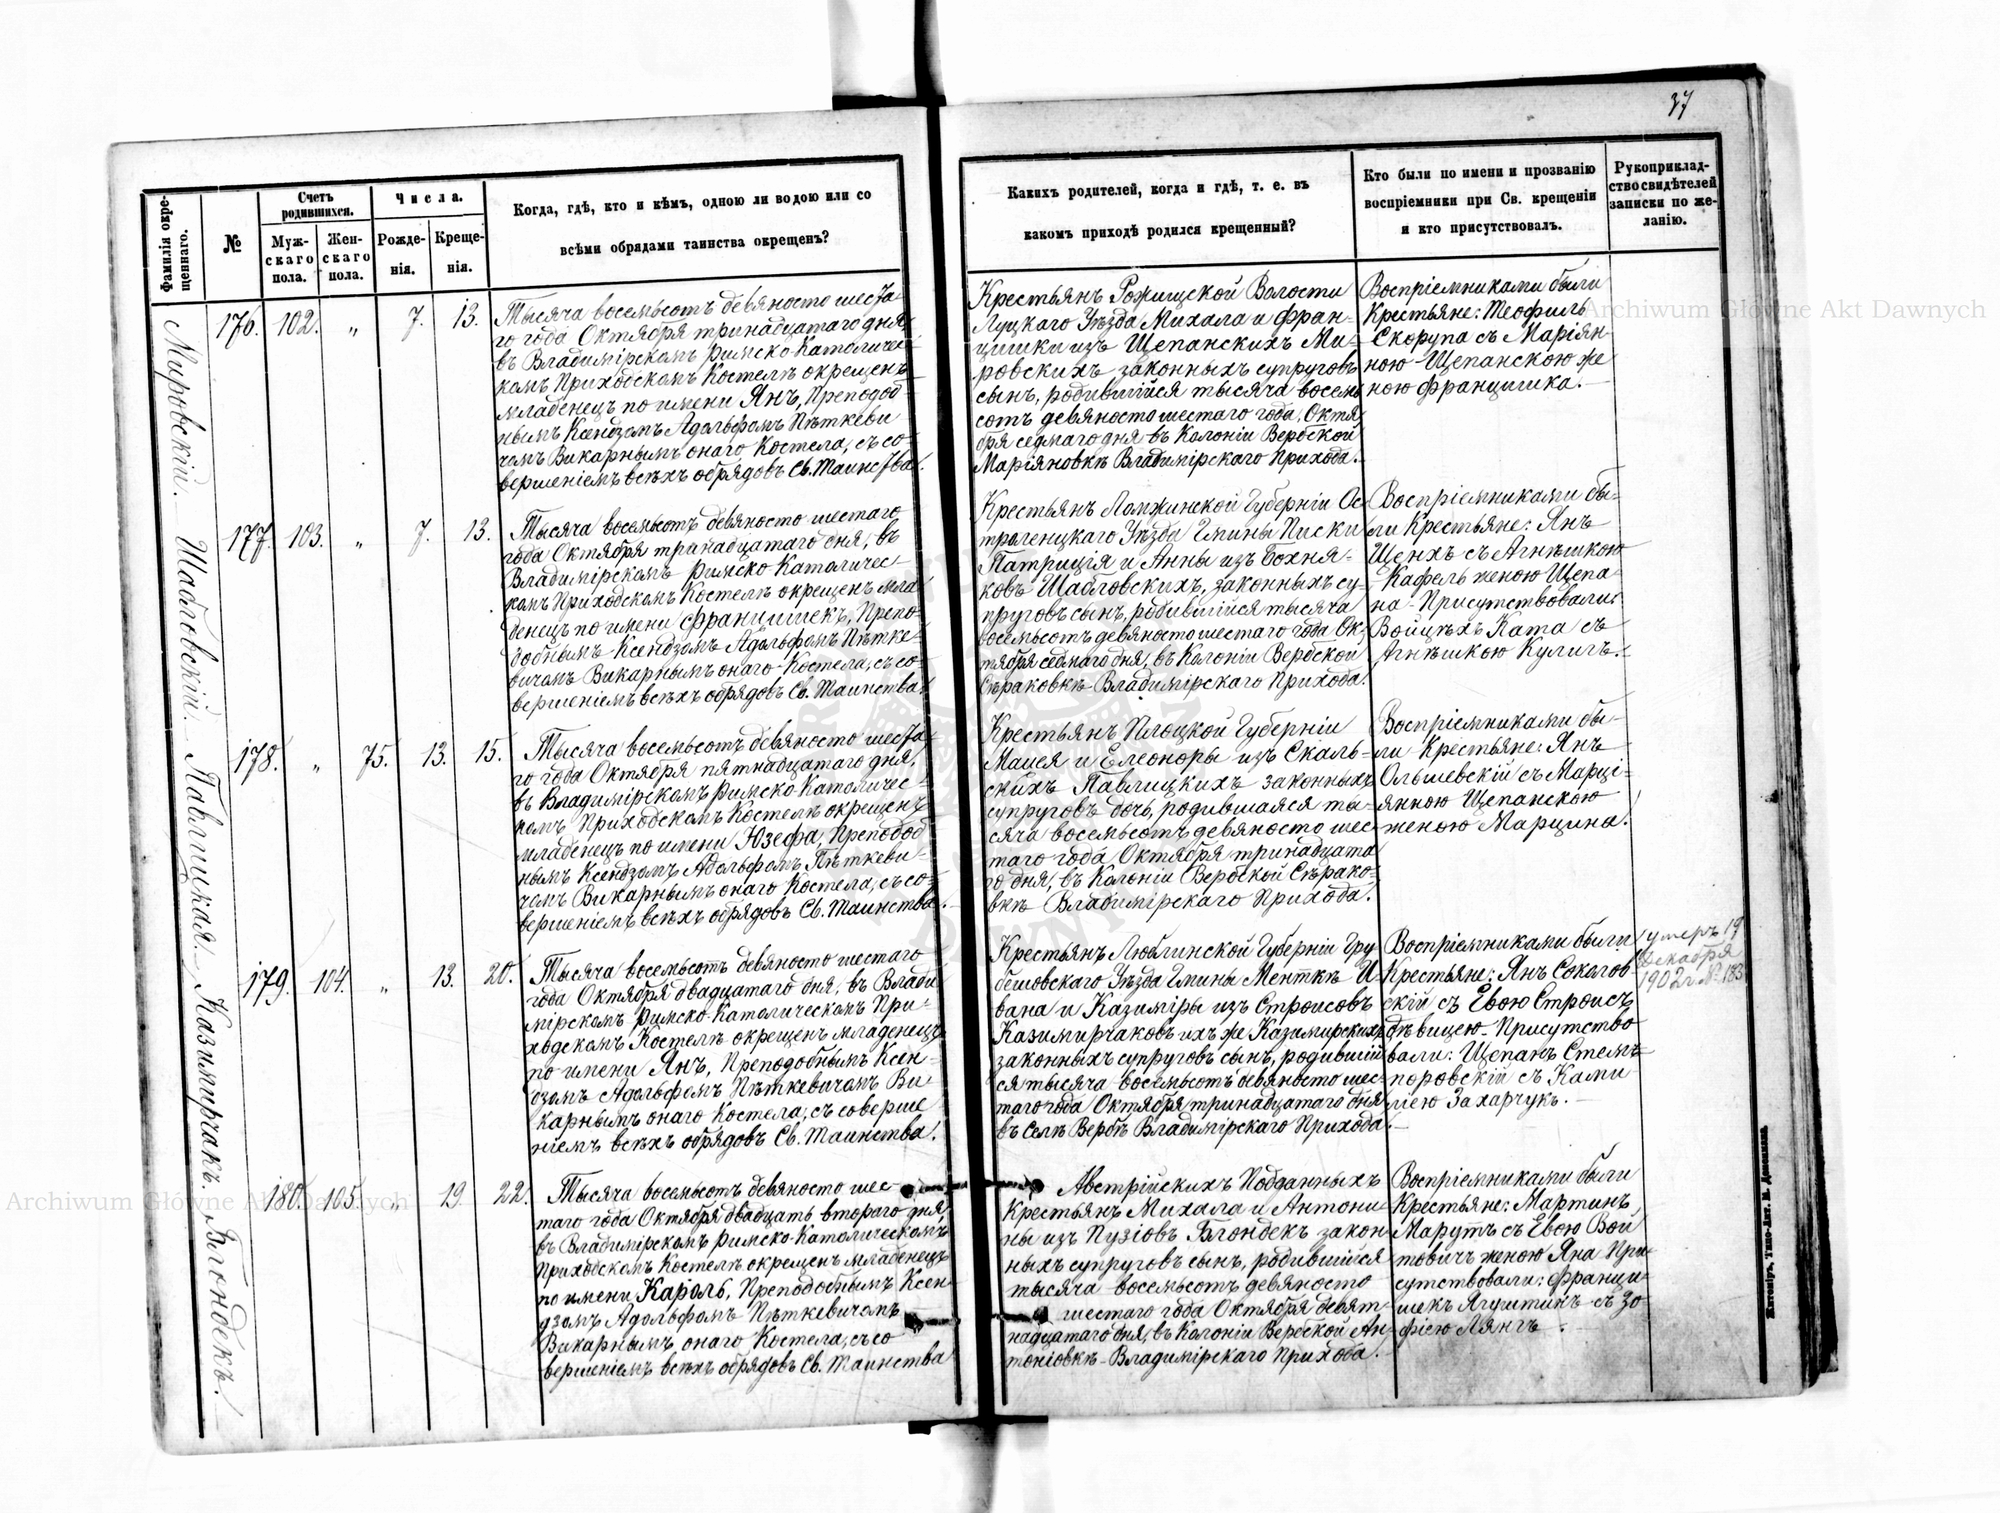 37
Фамилія окре-
щеннаго.
№
Счетъ
родившихся.
Муж-
скаго
пола.
Жен-
скаго
пола.
Числа.
Рожде-
нія.
Креще-
нія.
Когда, гдѣ, кто и кѣмъ, одною ли водою или со
всѣми обрядами таинства окрещенъ?
Какихъ родителей, когда и гдѣ, т. е. въ
какомъ приходѣ родился крещенный?
Кто были по имени и прозванію
воспріемники при Св. крещеніи
и кто присутствовалъ.
Рукоприклад-
ство свидѣтелей
записки по же-
ланію.
Мировскій.
176. 102. „ 7. 13.
Тысяча восемьсотъ девяносто шеста
го года Октября тринадцатаго дня
въ Владимірскомъ Римско-Католичес-
комъ Приходскомъ Костелѣ окрещенъ
младенецъ по имени Янъ, Преподоб-
нымъ Ксендзомъ Адольфомъ Пѣткеви
чомъ Викарнымъ онаго Костела, съ со-
вершеніемъ всѣхъ обрядовъ Св. Таинства.
Крестьянъ Рожищской Волости
Луцкаго Уѣзда Михала и Фран-
цишки изъ Щепанскихъ Ми-
ровскихъ законныхъ супруговъ
сынъ, родившійся тысяча восемь
сотъ девяносто шестаго года, Октя
бря седмаго дня въ Колоніи Вербской
Маріяновкѣ Владимірскаго Прихода.
Воспріемниками были
Крестьяне: Теофиль
Скорупа съ Маріян-
ною Щепанскою же
ною Францишка.
Шабловскій.
177. 103. „ 7. 13.
Тысяча восемьсотъ девяносто шестаго
года Октября тринадцатаго дня, въ
Владимірскомъ Римско Католичес-
комъ Приходскомъ Костелѣ окрещенъ мла
денецъ по имени Францишекъ, Препо-
добнымъ Ксендзомъ Адольфомъ Пѣтке-
вичомъ Викарнымъ онаго Костела, съ со-
вершеніемъ всѣхъ обрядовъ Св. Таинства.
Крестьянъ Ломжинской Губерніи Ос-
троленцкаго Уѣзда Гмины Писки
Патриція и Анны изъ Бохня-
ковъ Шабловскихъ, законныхъ су-
пруговъ сынъ, родившійся тысяча
восемьсотъ девяносто шестаго года Ок-
тября седмаго дня, въ Колоніи Вербской
Сѣраковкѣ Владимірскаго Прихода.
Воспріемниками бы-
ли Крестьяне: Янъ
Щенхъ съ Агнѣшкою
Кафель женою Щепа-
на. Присутствовали:
Войцѣхъ Ката съ
Агнѣшкою Кулигъ.
Павлицкая.
178. „ 75. 13. 15.
Тысяча восемьсотъ девяносто шеста
го года Октября пятнадцатаго дня,
въ Владимірскомъ Римско-Католичес-
комъ Приходскомъ Костелѣ окрещенъ
младенецъ по имени Юзефа, Преподоб
нымъ Ксендзомъ Адольфомъ Пѣткеви-
чомъ Викарнымъ онаго Костела, съ со-
вершеніемъ всѣхъ обрядовъ Св. Таинства.
Крестьянъ Плоцкой Губерніи
Мацея и Елеоноры изъ Скаль-
скихъ Павлицкихъ законныхъ
супруговъ дочь, родившаяся ты-
сяча восемьсотъ девяносто шес-
таго года Октября тринадцата
го дня, въ Колоніи Вербской Сѣрако-
вкѣ Владимірскаго Прихода.
Воспріемниками бы-
ли Крестьяне: Янъ
Ольшевскій съ Марці-
янною Щепанскою
женою Марцина.
Казимирчакъ.
179. 104. „ 13. 20.
Тысяча восемьсотъ девяносто шестаго
года Октября двадцатаго дня, въ Влади
мірскомъ Римско-Католическомъ При-
ходскомъ Костелѣ окрещенъ младенецъ
по имени Янъ, Преподобнымъ Ксен-
дзомъ Адольфомъ Пѣткевичомъ Ви-
карнымъ онаго Костела, съ соверше
ніемъ всѣхъ обрядовъ Св. Таинства.
Крестьянъ Люблинской Губерніи Гру
бешовскаго Уѣзда Гмины Менткѣ И-
вана и Казиміры изъ Строисовъ
Казимирчаковъ ихъ же Казимирскихъ
законныхъ супруговъ сынъ, родившій
ся тысяча восемьсотъ девяносто шес-
таго года Октября тринадцатаго дня
въ Селѣ Вербѣ Владимірскаго Прихода.
Воспріемниками были
Крестьяне: Янъ Соколов-
скій съ Евою Строисъ
дѣвицею. Присутство
вали: Щепанъ Стем-
поровскій съ Ками
лею Захарчукъ.
умеръ 19
Декабря
1902 г. №183
Блондекъ.
180. 105. „ 19. 22.
Тысяча восемьсотъ девяносто шес-
таго года Октября двадцать втораго дня
въ Владимірскомъ Римско-Католическомъ
Приходскомъ Костелѣ окрещенъ младенецъ
по имени Кароль, Преподобнымъ Ксен-
дзомъ Адольфомъ Пѣткевичомъ
Викарнымъ онаго Костела, съ со
вершеніемъ всѣхъ обрядовъ Св. Таинства
Австрійскихъ Подданныхъ
Крестьянъ Михала и Антони-
ны изъ Пузіовъ Блондекъ закон
ныхъ супруговъ сынъ, родившійся
тысяча восемьсотъ девяносто
шестаго года Октября девят-
надцатаго дня, въ Колоніи Вербской Ан-
тоніовкѣ Владимірскаго Прихода.
Воспріемниками были
Крестьяне: Мартинъ
Марутъ съ Евою Вой
товичъ женою Яна При
сутствовали: Франци-
шекъ Ягуштинъ съ Зо
фіею Лянгъ.
Житомір. Типо-Лит.
Archiwum Główne Akt Dawnych
Archiwum Główne Akt Dawnych